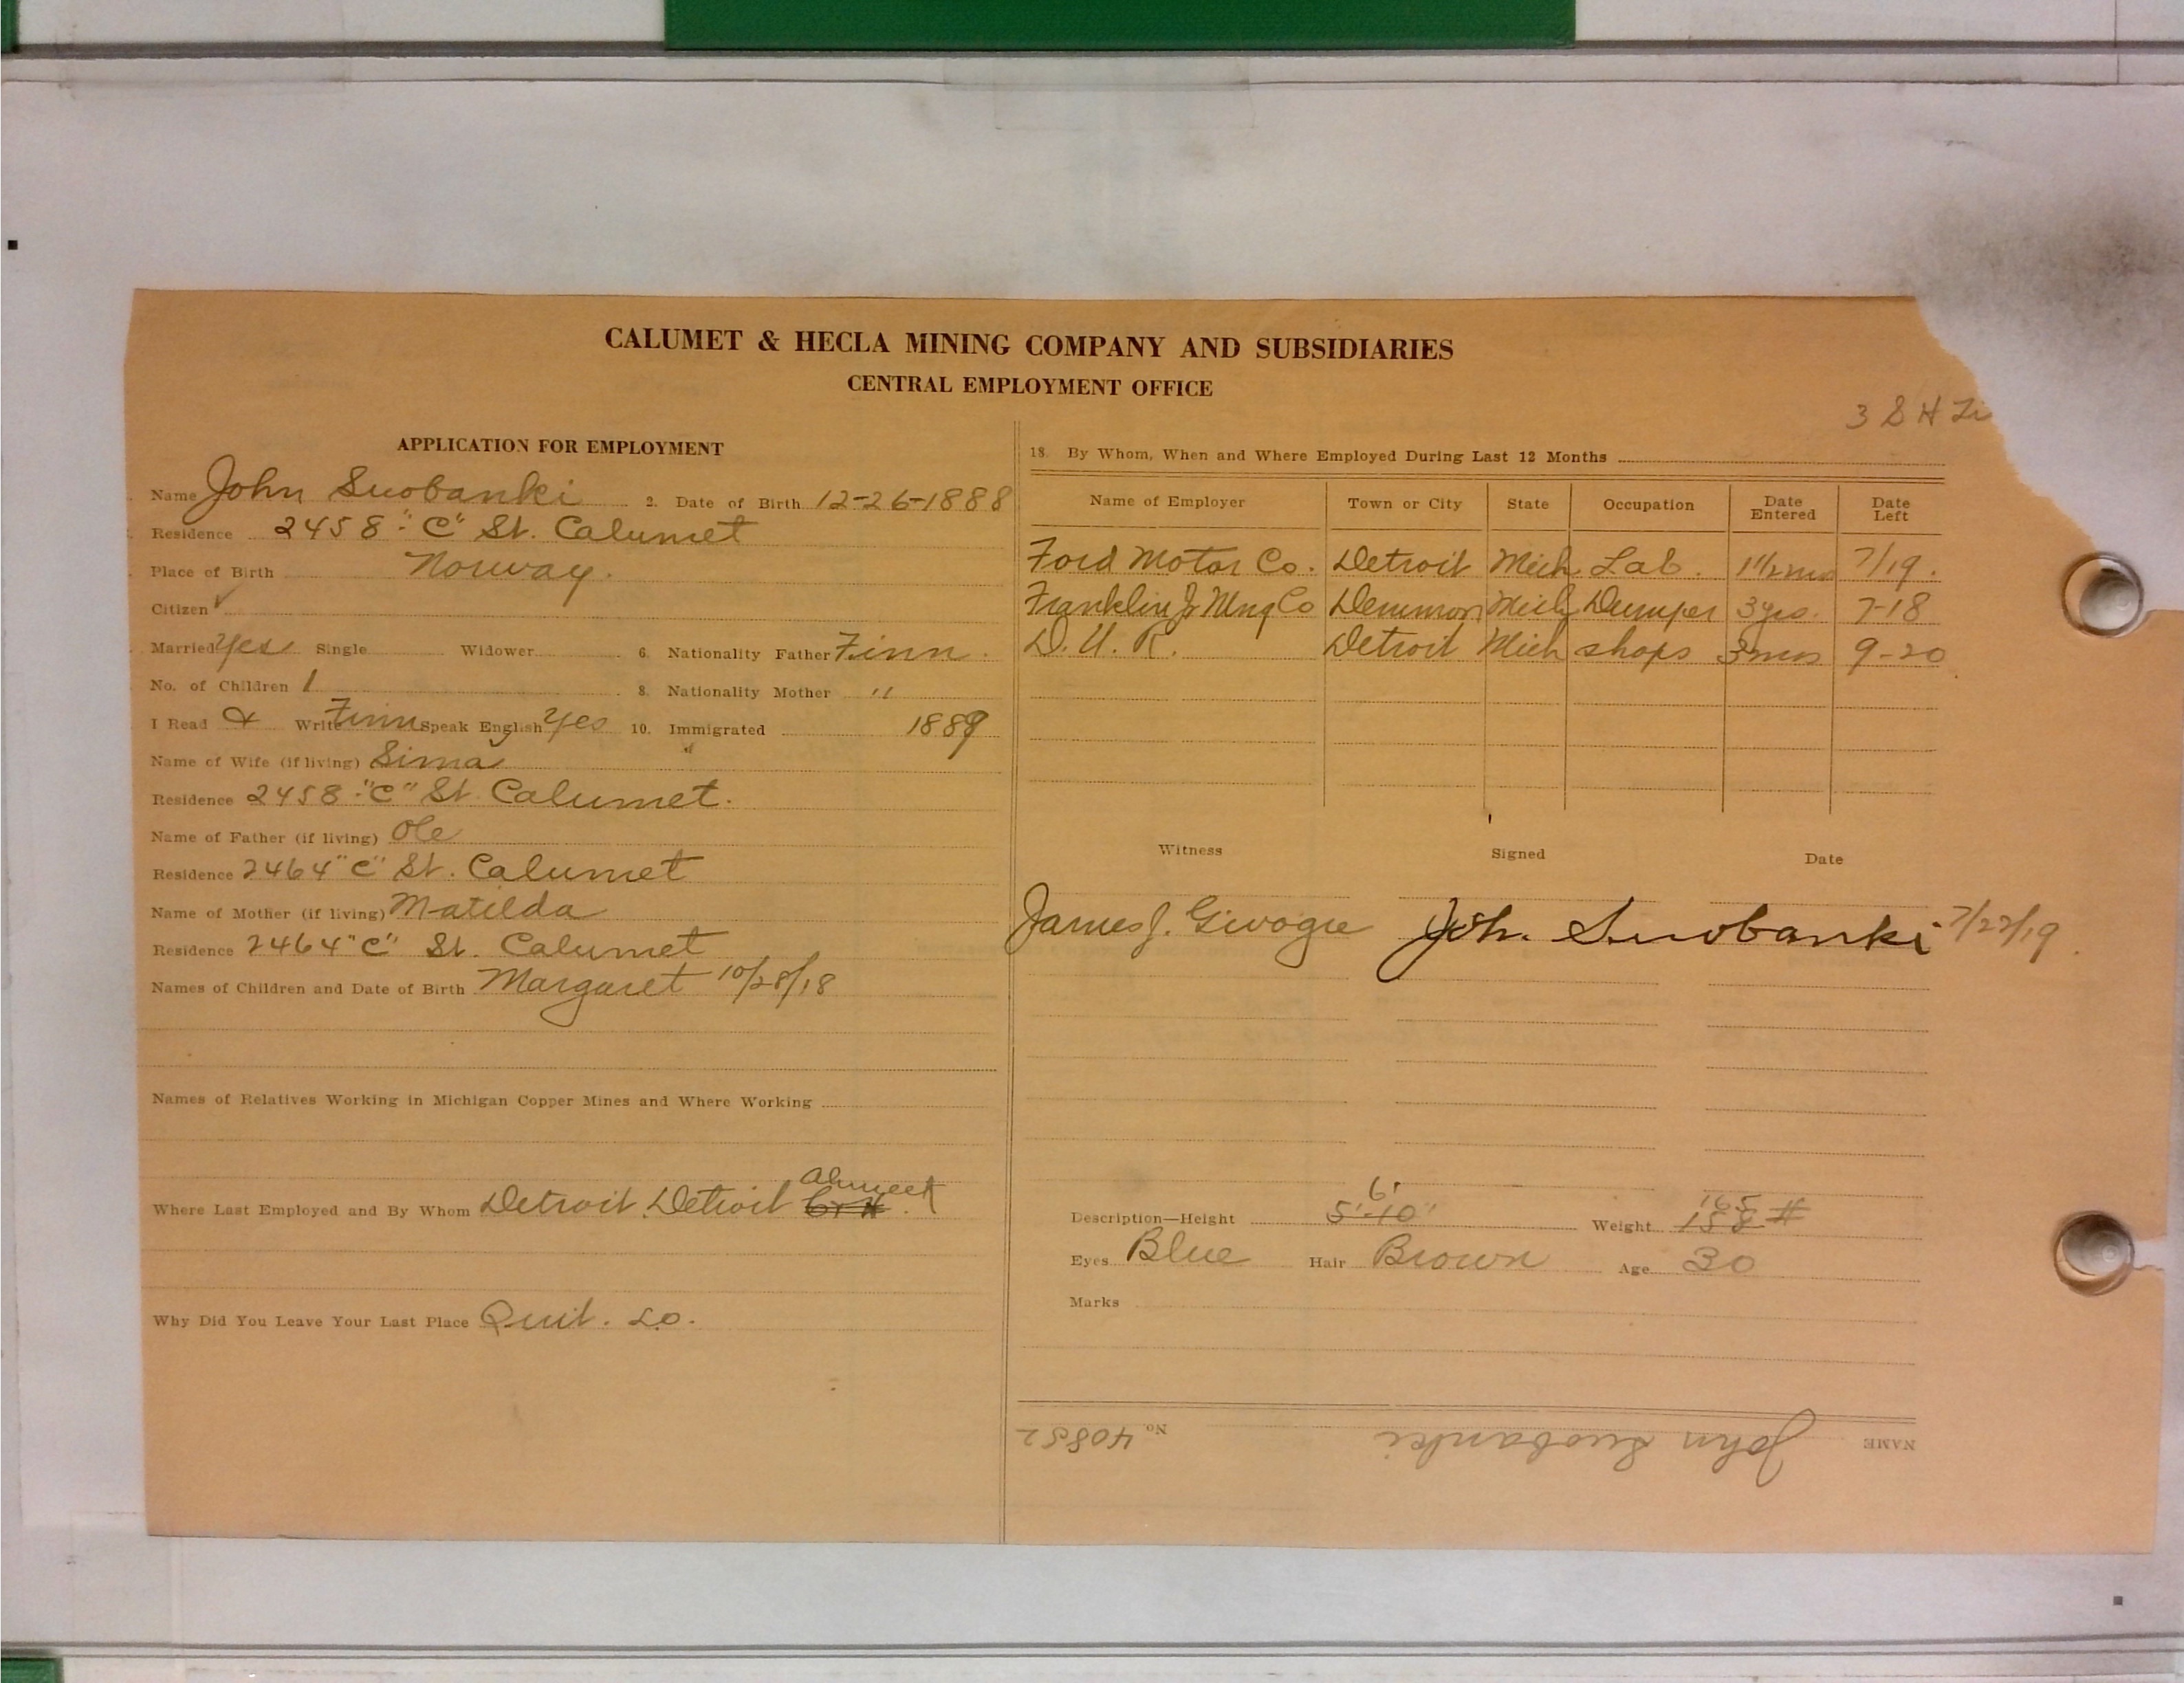 CALUMET & HECLA MINING COMPANY AND SUBSIDIARIES
CENTRAL EMPLOYMENT OFFICE
APPLICATION FOR EMPLOYMENT
Name John Suobanki 2. Date of Birth 12-26-1888
Residence 2458 "C" St. Calumet
Place of Birth Norway.
Citizen ✓
Married yes Single Widower 6. Nationality Father Finn.
No. of Children 1 8. Nationality Mother "
I Read & Write Finn Speak English yes 10. Immigrated 1889
Name of Wife (if living) Sima
Residence 2458 "C" St. Calumet.
Name of Father (if living) Ole
Residence 2464 "C" St. Calumet
Name of Mother (if living) Matilda
Residence 2464 "C" St. Calumet
Names of Children and Date of Birth Margaret 10/28/18
Names of Relatives Working in Michigan Copper Mines and Where Working
Ahmeek
Where Last Employed and By Whom Detroit Detroit
Why Did You Leave Your Last Place Quit. So.
3 8 H
18. By Whom, When and Where Employed During Last 12 Months
Name of Employer Town or City State Occupation Date Entered Date Left
Ford Motor Co. Detroit Mich Lab. 1 1/2 mo 7/19.
Franklin Jr Mng Co Demmon Mich Dumper 3 yrs. 7-18
D. U. R. Detroit Mich shops 3 mos 9-20
Witness Signed Date
James J. Joh. Suobanki 7/22/19
6' 165
Description—Height 5'-10" Weight 158 #
Eyes Blue Hair Brown Age 30
Marks
NAME John Suobanki No. 40852